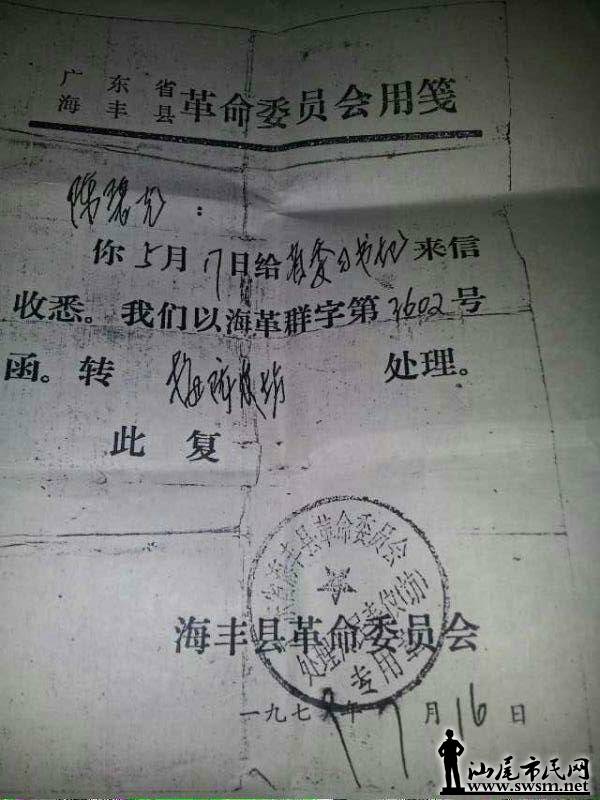 广东省
海丰县 革命委员会用笺
陈碧
:
你5月17日给县委书记来信
收悉。我们以海革群字第3602号
函。转 处理。
此复
海丰县革命委员会
处理
专用章
海丰县革命委员会
一九七 年 月16日
汕尾市民网
www.swsm.net